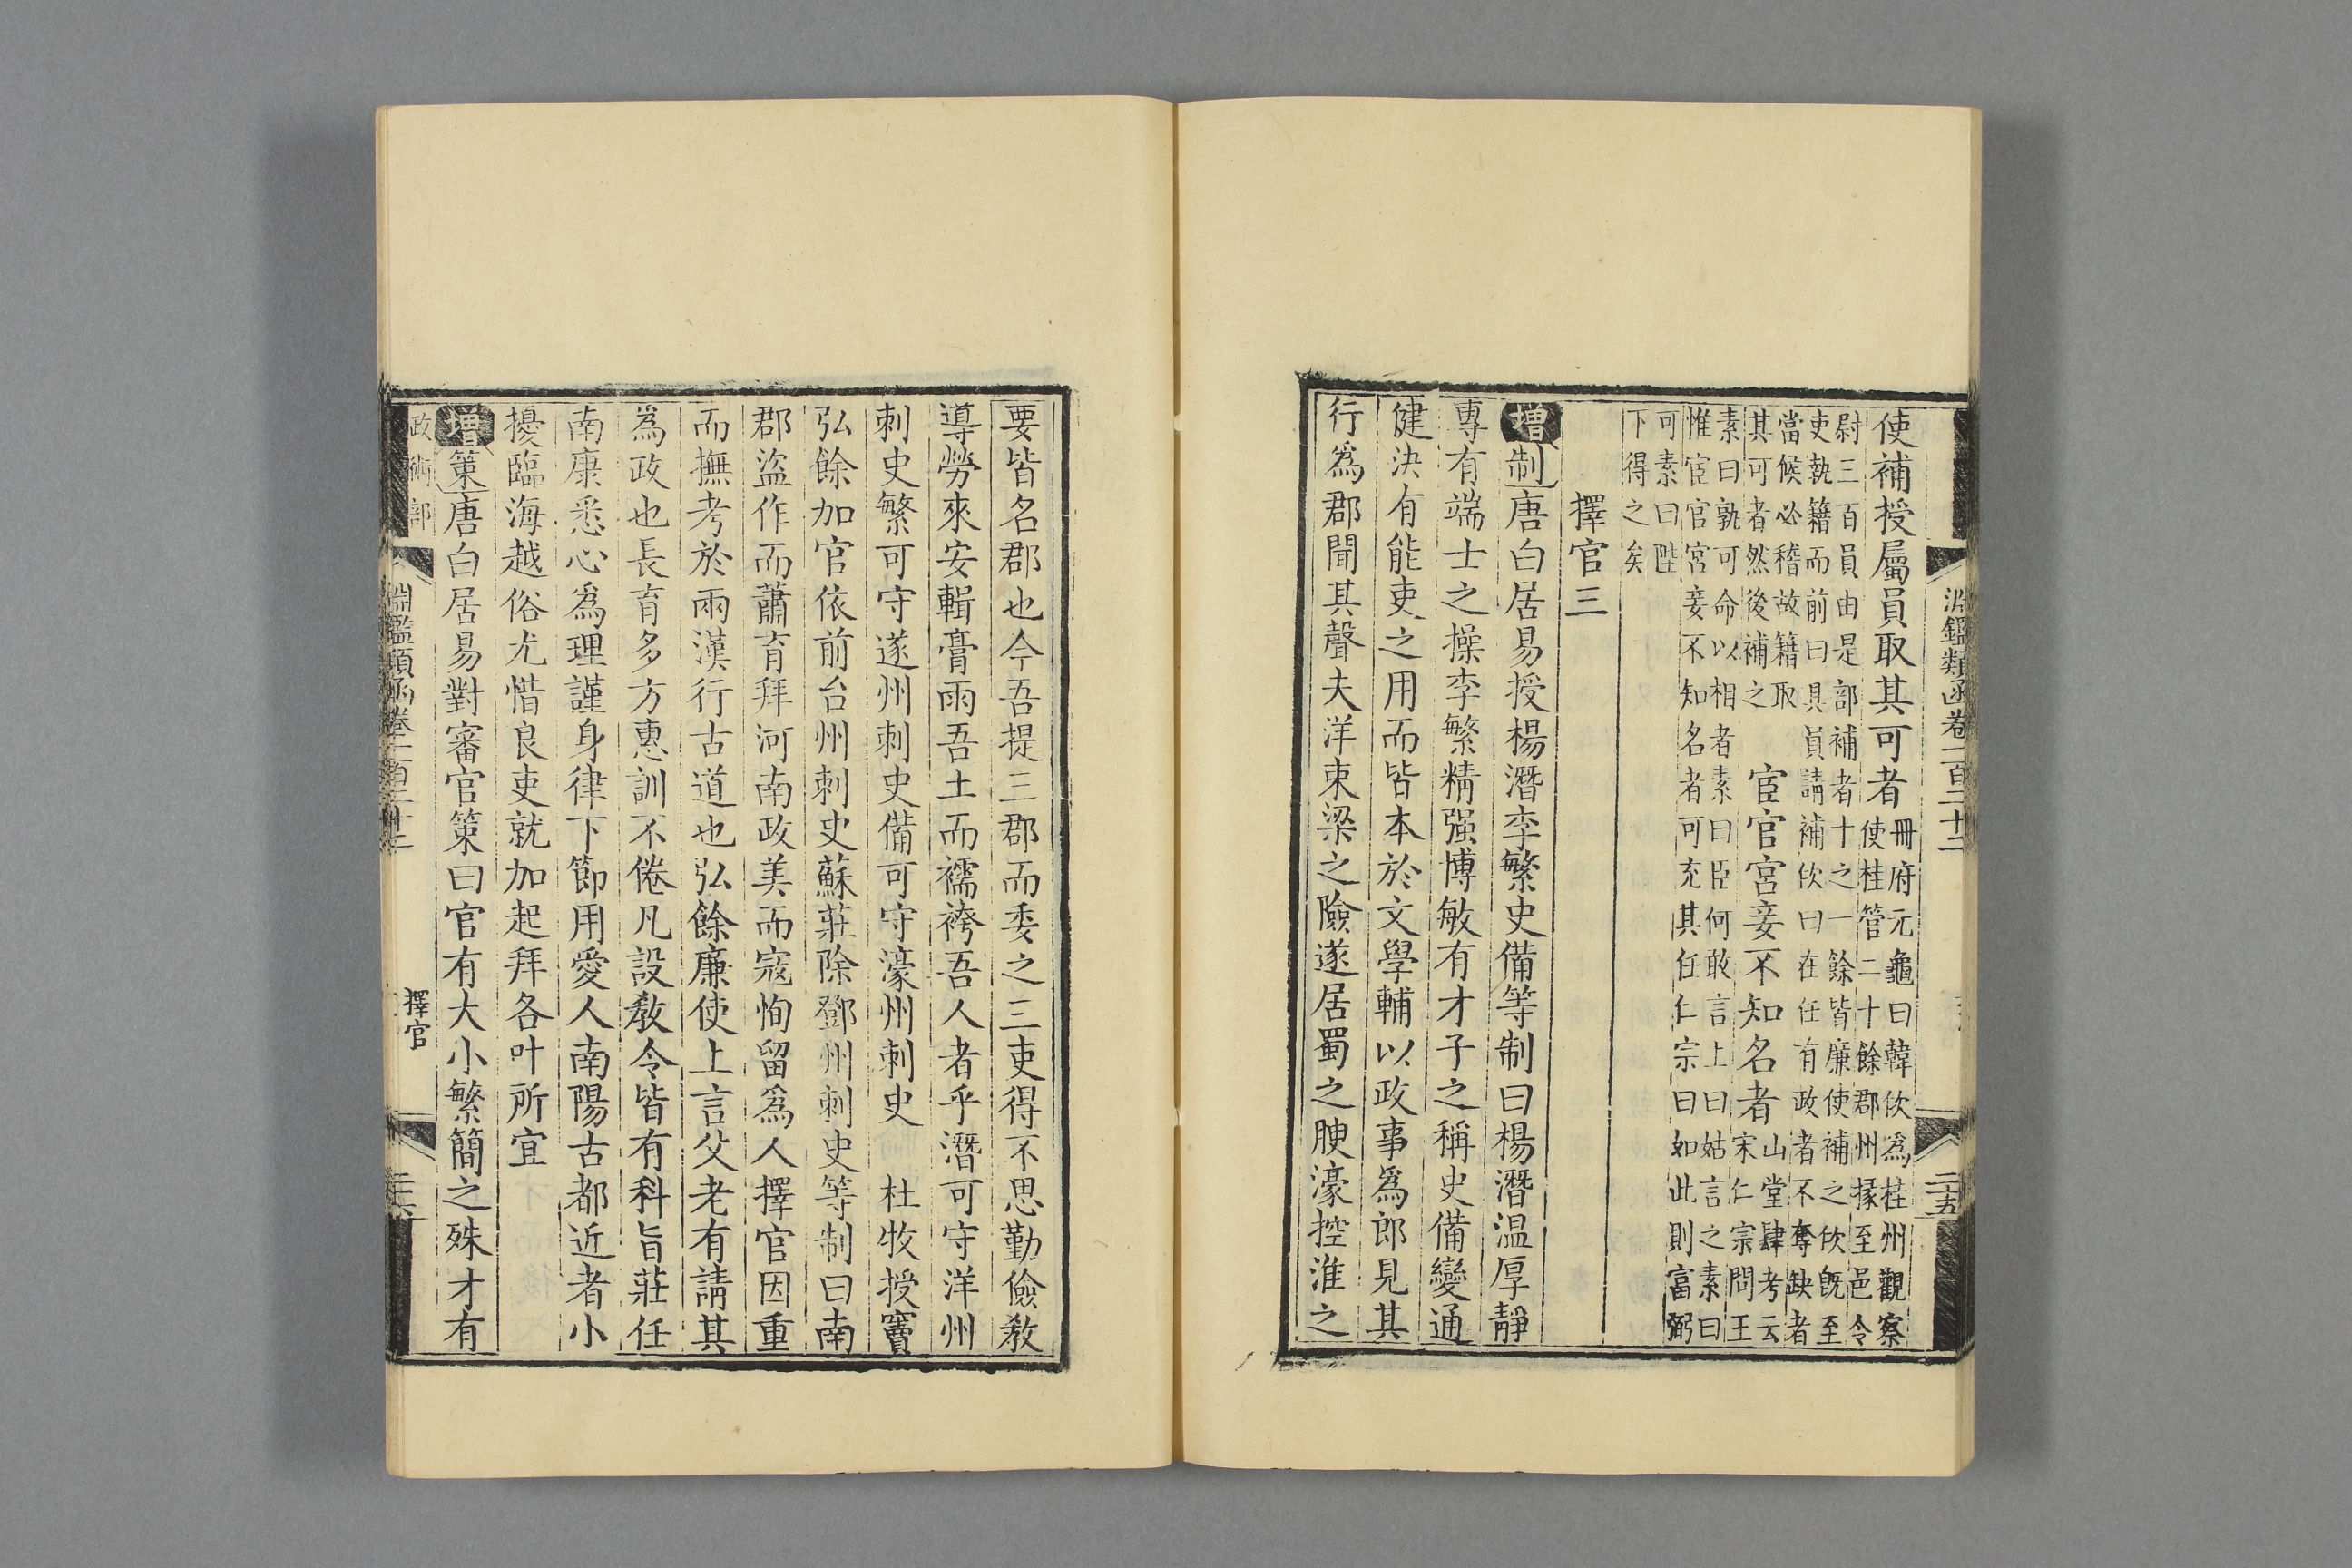 淵鑑類函卷一百二十二
二五
使補授屬員取其可者冊府元龜曰韓佽爲桂州觀察
使桂管二十餘郡州掾至邑令
尉三百員由是部補者十之一餘皆廉使補之佽既至
吏執籍而前曰具員請補佽曰在任有政者不奪缺者
當候必稽故籍取
其可者然後補之
宦官宮妾不知名者山堂肆考云
宋仁宗問王
素曰孰可命以相者素曰臣何敢言上曰姑言之素曰
惟宦官宮妾不知名者可充其任仁宗曰如此則富弼
可素曰陛
下得之矣
擇官三
增制唐白居易授楊潛李繁史備等制曰楊潛温厚靜
專有端士之操李繁精强博敏有才子之稱史備變通
健決有能吏之用而皆本於文學輔以政事爲郎見其
行爲郡聞其聲夫洋束梁之險遂居蜀之腴濠控淮之
要皆名郡也今吾提三郡而委之三吏得不思勤儉敎
導勞來安輯膏雨吾土而襦袴吾人者乎潛可守洋州
刺史繁可守遂州刺史備可守濠州刺史 杜牧授竇
弘餘加官依前台州刺史蘇莊除鄧州刺史等制曰南
郡盜作而蕭育拜河南政美而寇恂留爲人擇官因重
而撫考於兩漢行古道也弘餘廉使上言父老有請其
爲政也長育多方惠訓不倦凡設敎令皆有科旨莊任
南康悉心爲理謹身律下節用愛人南陽古都近者小
擾臨海越俗尤惜良吏就加起拜各叶所宜
增策唐白居易對審官策曰官有大小繁簡之殊才有
政術部
淵鑑類函卷一百二十二
擇官
二六